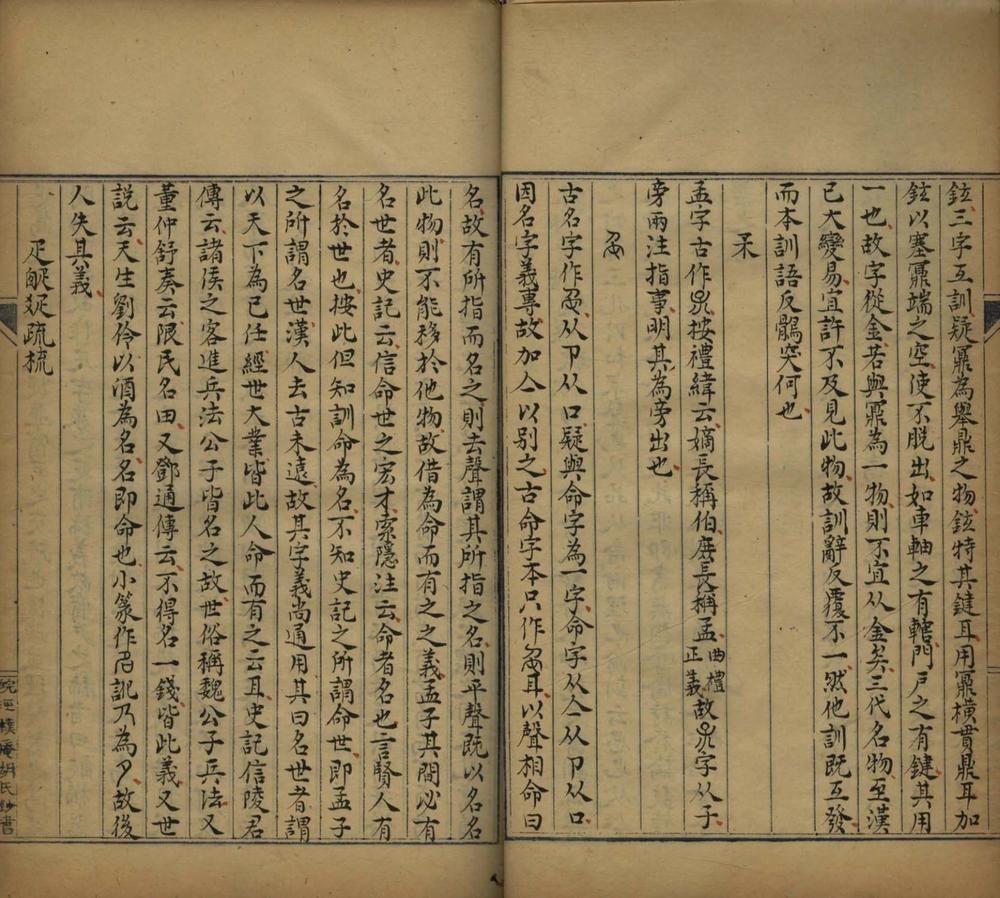 鉉三字互訓疑鼏為舉鼎之物鉉特其鍵耳用鼏橫貫鼎耳加
鉉以塞鼏端之空使不脫出如車軸之有轄門戶之有鍵其用
一也故字從金若與鼏為一物則不宜从金矣三代名物至漢
已大變易宜許不及見此物故訓辭反覆不一然他訓既互發
而本訓語反鶻突何也
孟字古作按禮緯云嫡長稱伯庶長稱孟曲禮正義故字从子
旁兩注指事明其為旁出也
古名字作从卩从口疑與命字為一字命字从亼从卩从口
因名字義專故加亼以別之古命字本只作耳以聲相命曰
名故有所指而名之則去聲謂其所指之名則平聲既以名名
此物則不能移於他物故借為命而有之之義孟子其間必有
名世者史記云信命世之宏才索隱注云命者名也言賢人有
名於世也按此但知訓命為名不知史記之所謂命世即孟子
之所謂名世漢人去古未遠故其字義尚通用其曰名世者謂
以天下為已任經世大業皆此人命而有之云耳史記信陵君
傳云諸侯之客進兵法公子皆名之故世俗稱魏公子兵法又
董仲舒奏云限民名田又鄧通傳云不得名一錢皆此義又世
説云天生劉伶以酒為名名即命也小篆作訛乃為夕故後
人失其義
疋疏梳
樸庵胡氏鈔書